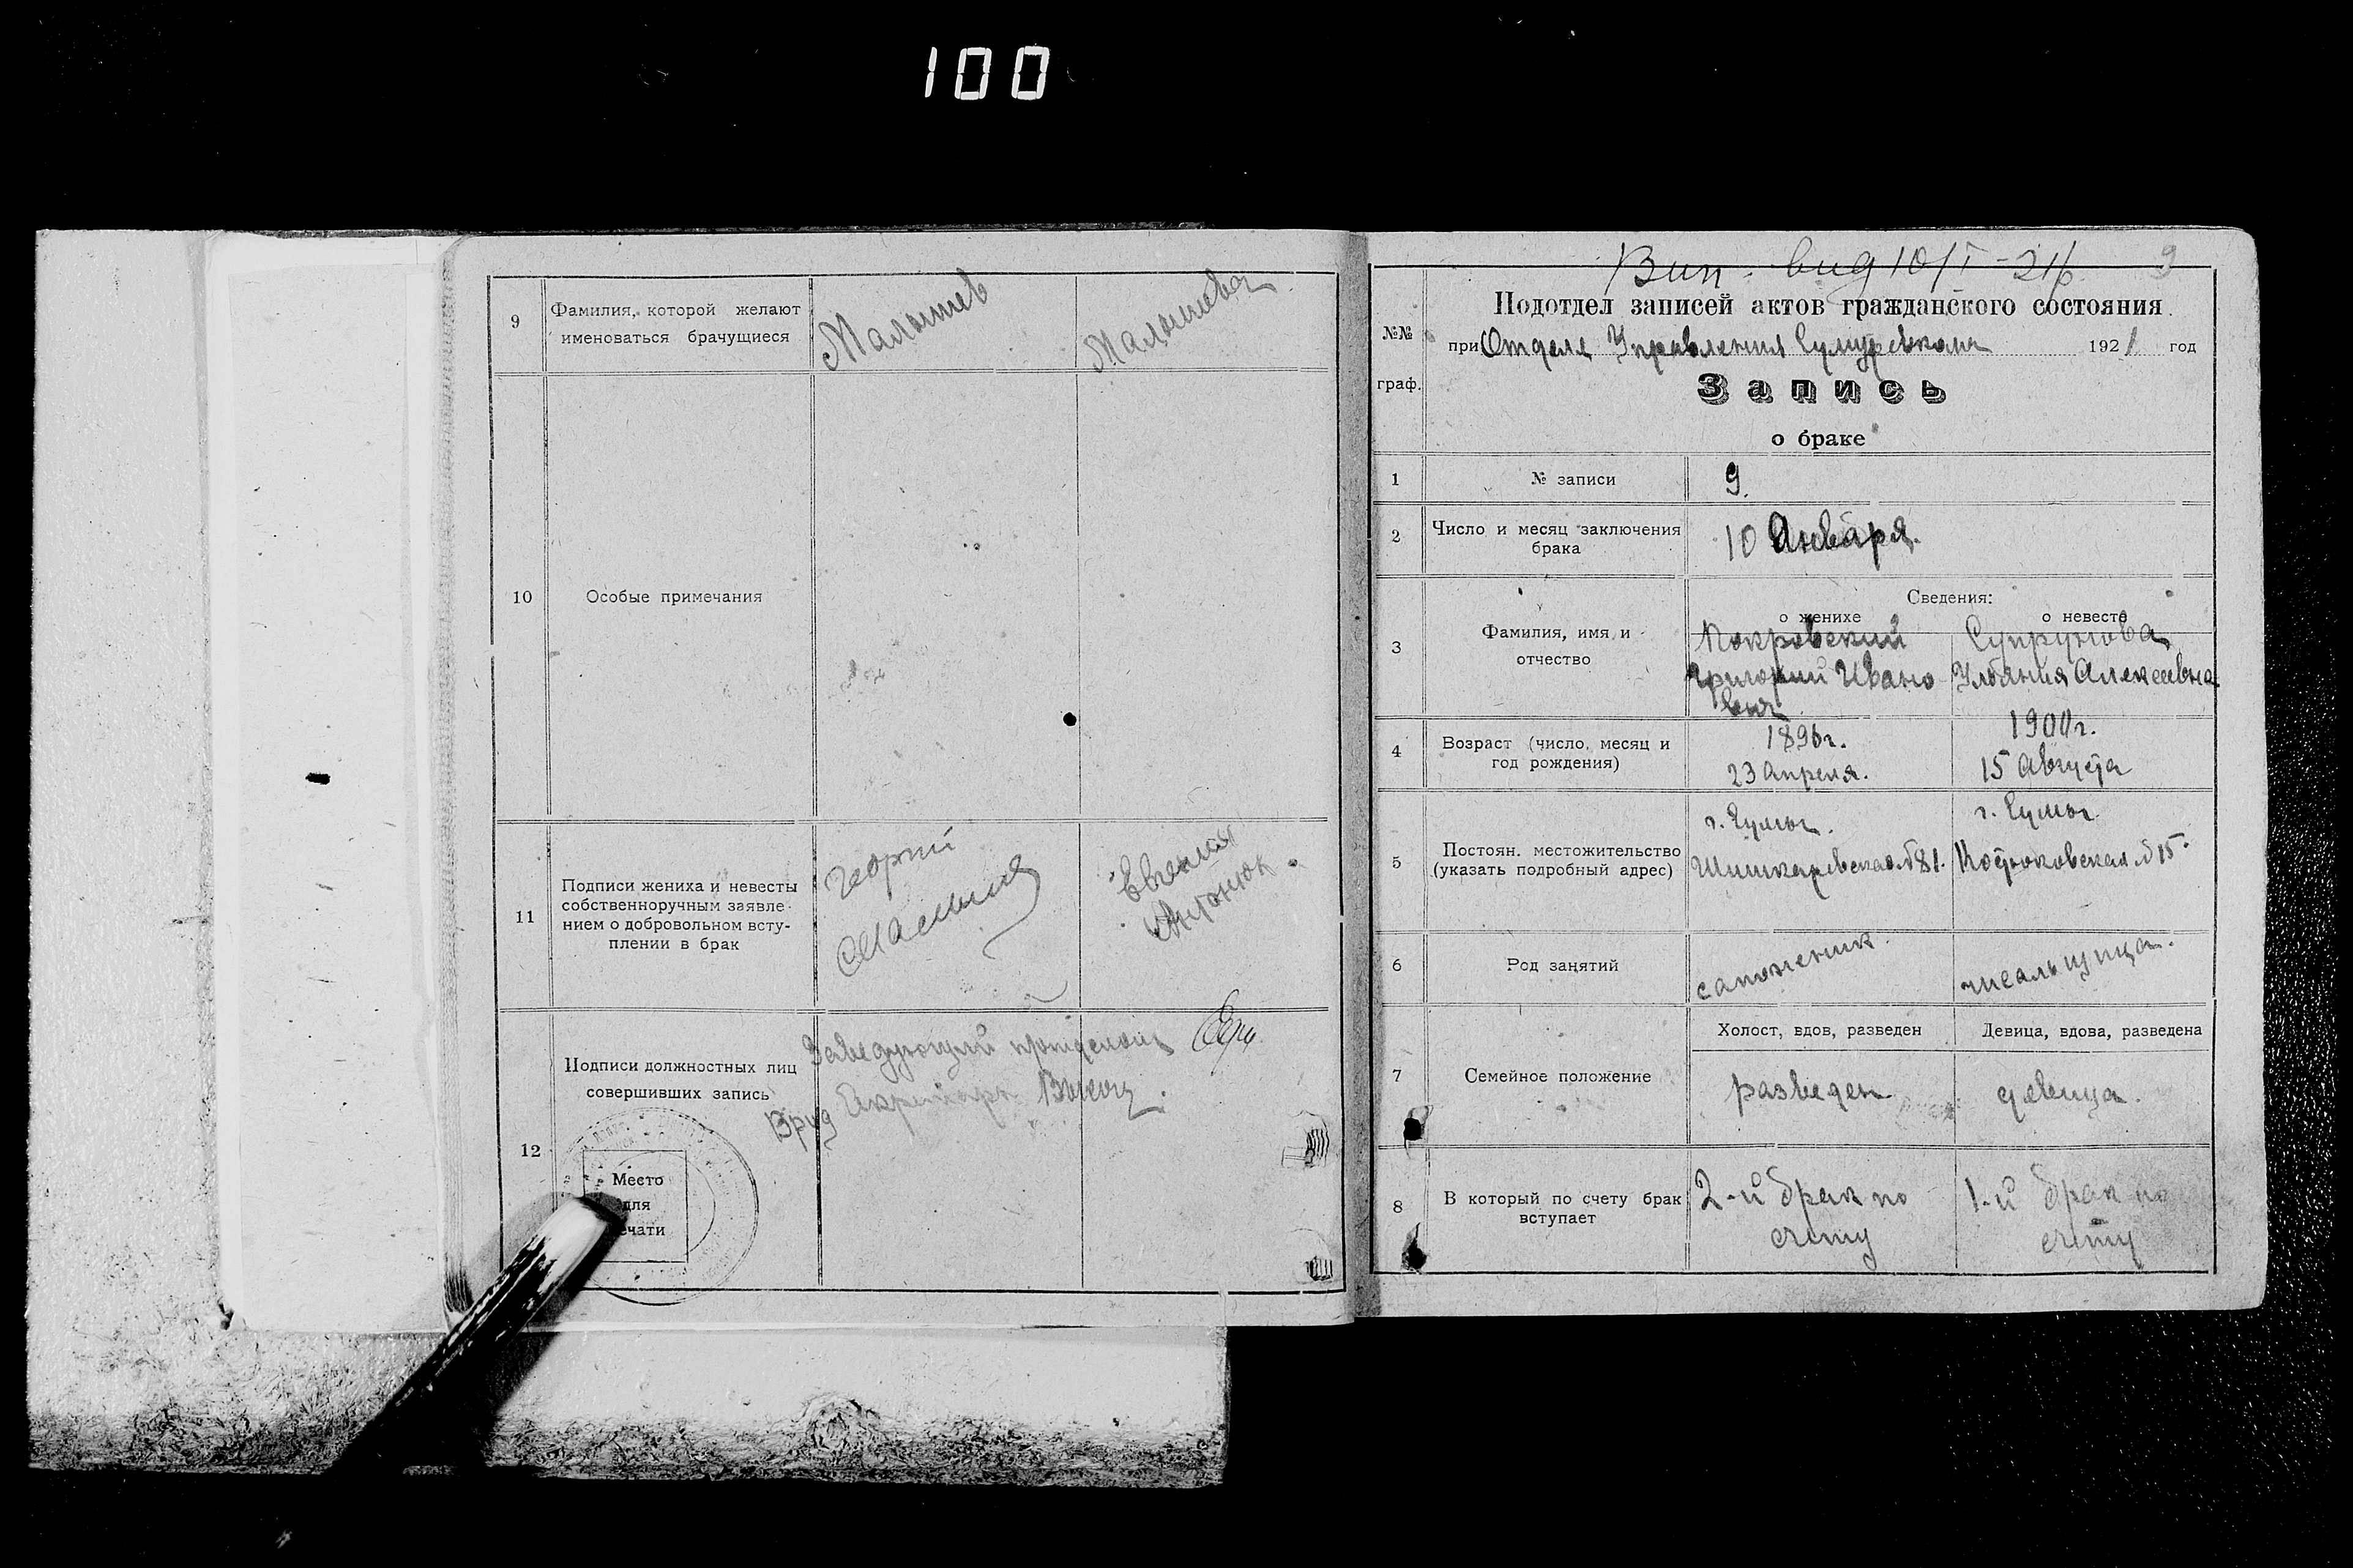 100
9
Фамилия, которой желают
именоваться брачущиеся
Малышев
Малышева
10
Особые примечания
11
Подписи жениха и невесты
собственноручным заявле-
нием о добровольном всту-
плении в брак
Георгий
Малышев
Евгения
Антонюк
12
Подписи должностных лиц
совершивших запись
Заведующий подотделом
Врид Секретаря
Место
для
печати
Вип. вид 10/I-21р
9
№№
граф.
Подотдел записей актов гражданского состояния
при Отделе Управления Сумуревкома 1921 год
Запись
о браке
1
№ записи
9.
2
Число и месяц заключения
брака
10 Января.
3
Фамилия, имя и
отчество
Сведения:
о женихе
о невесте
Покровский
Григорий Ивано
вич
Супрунова
Ульяния Алексеевна
4
Возраст (число, месяц и
год рождения)
1896г.
23 апреля.
1900г.
15 Августа
5
Постоян. местожительство
(указать подробный адрес)
г. Сумы.
Шишкаревская №81.
г. Сумы
Костюковская №15
6
Род занятий
сапожник.
чесальщица.
7
Семейное положение
Холост, вдов, разведен
Девица, вдова, разведена
разведен
девица.
8
В который по счету брак
вступает
2-й брак по
счету
1-й брак по
счету